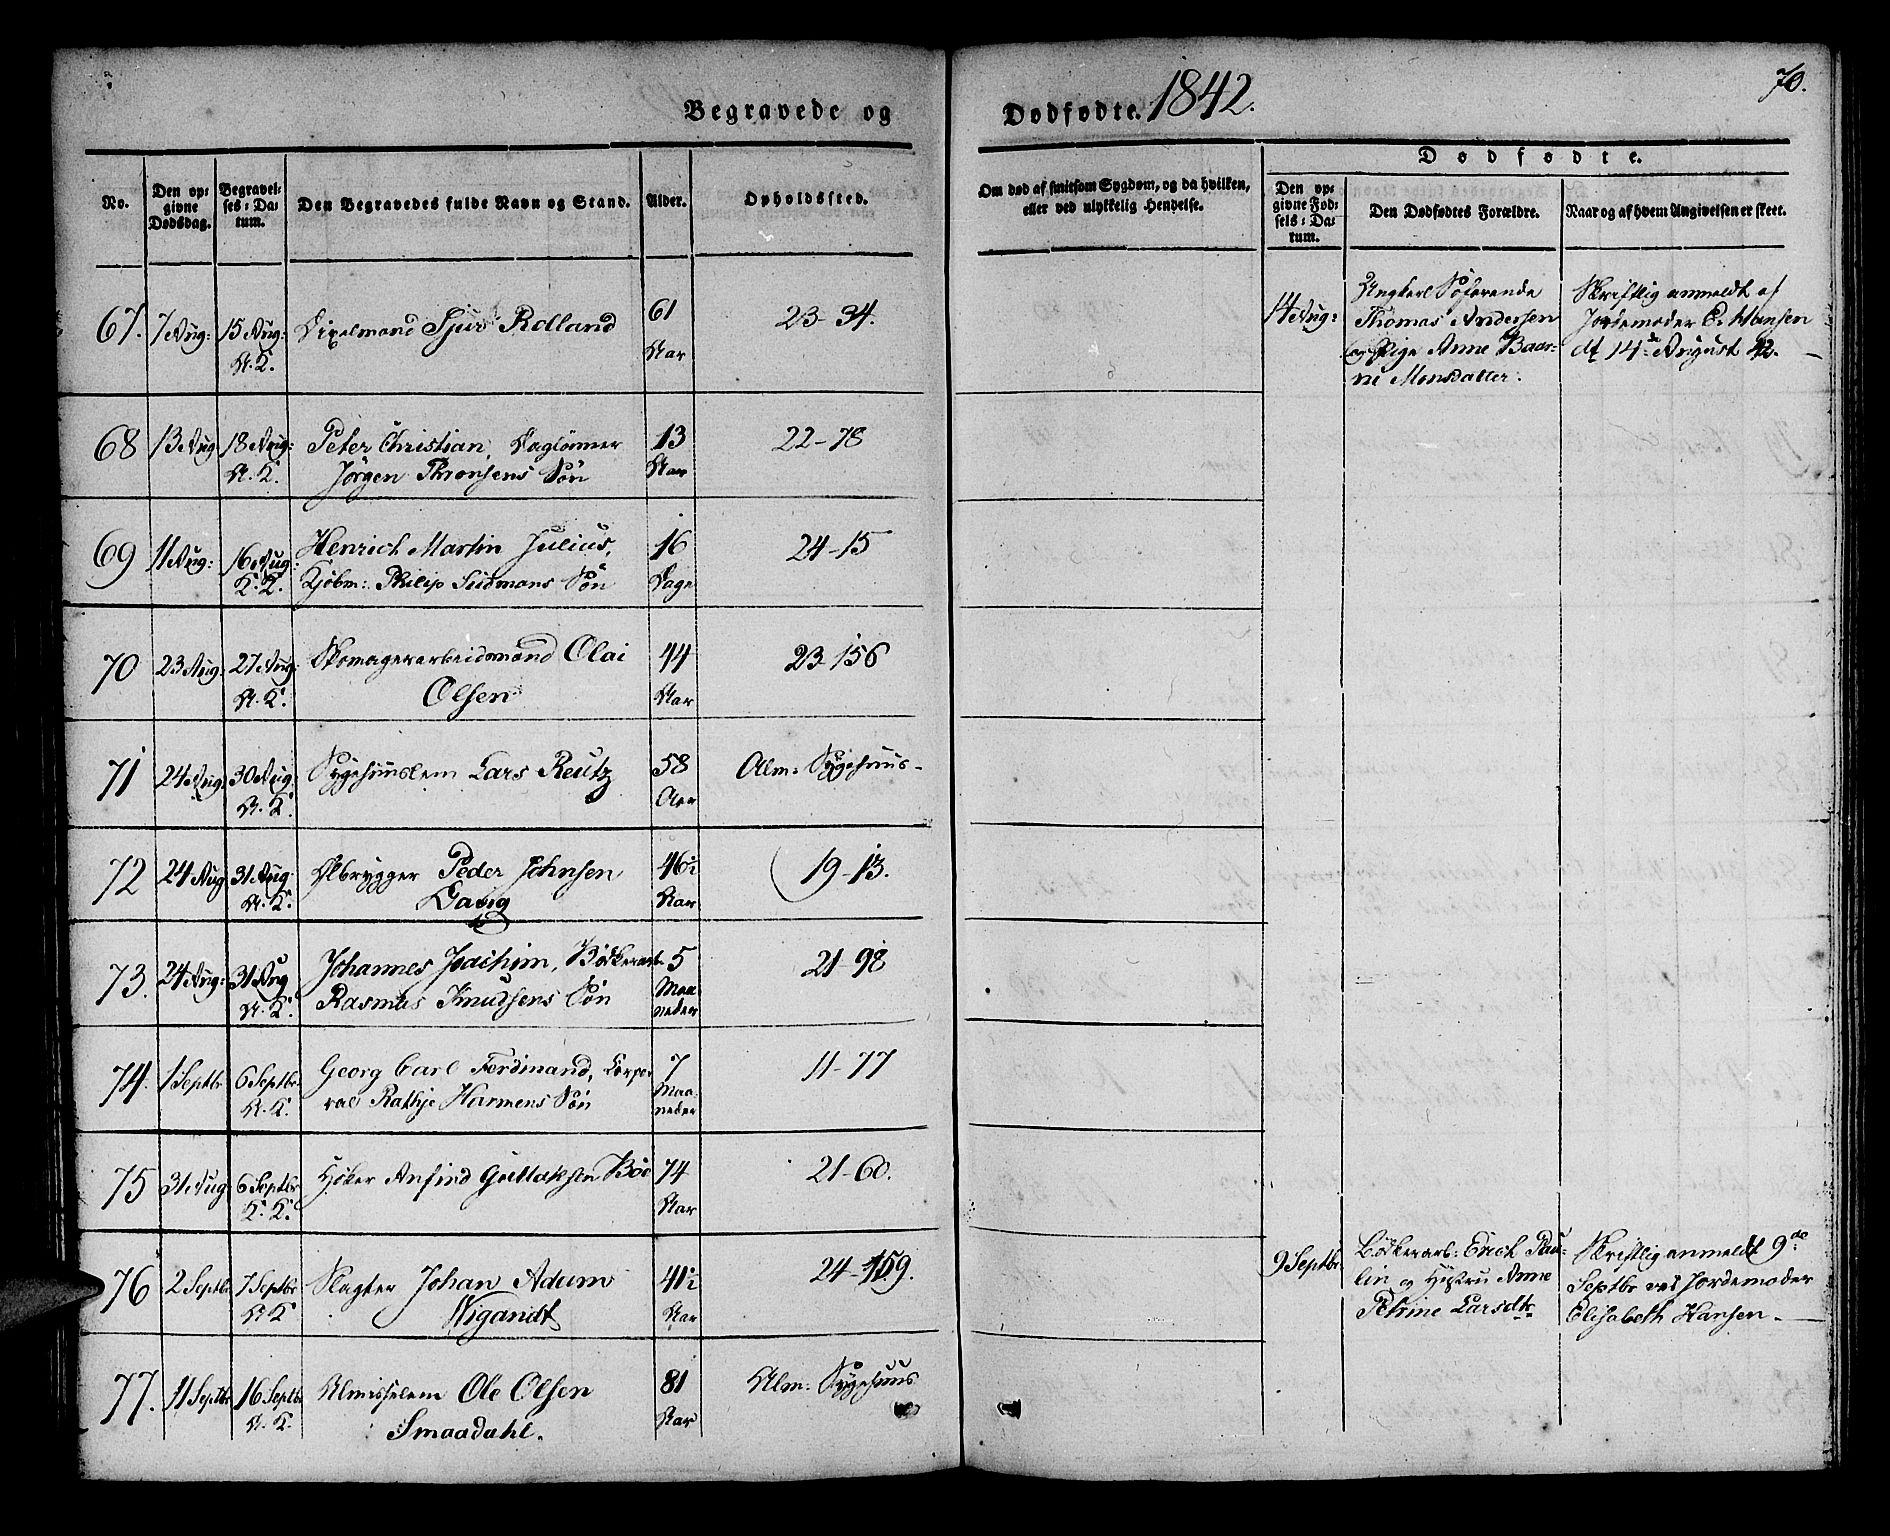 Begravede og
Dødfødte. 1842.
70.
No.
Den op=
givne
Dødsdag.
Begravel=
ses=Da=
tum.
Den Begravedes fulde Navn og Stand.
Alder.
Opholdssted.
Om død af smitsom Sygdom, og da hvilken,
eller ved ulykkelig Hendelse.
Dødfødte.
Den op=
givne Fød=
sels=Da=
tum.
Den Dødfødtes Forældre.
Naar og af hvem Angivelsen er skeet.
67. 7 Aug: 15 Aug: Sjur Rolland 61 23-34.
A. K. Aar
14 Aug:
Ungkarl Søfarende
Thomas Andersen
og Pige Anne Baar=
ni Monsdatter.
Skriftlig anmeldt af
Jordemoder E. Hansen
df 14de August 42.
68 13 Aug 18 Aug: Peter Christian, Daglønner 13 22-78
A. K. Jørgen Thronsens Søn Aar
69 11 Aug: 16 Aug: Henrich Martin Julius, 16 24-15
K. K. Kjøbm: Philip Sudmans Søn Dage
70 23 Aug: 27 Aug: Skomagerarbeidsmand Olai 44 23-156
A. K. Olsen Aar
71 24 Aug: 30 Aug: Sygehuuslem Lars Reutz 58 Alm: Sygehuus-
A. K. Aar
72 24 Aug 31 Aug. Ølbrygger Peder Johnsen 46½ 19-13.
A. K. Davig Aar
73. 24 Aug: 31 Aug Johannes Joachim, Bødkerarb 5 21-98
A. K. Rasmus Knudsens Søn Maa
neder
74. 1 Septbr 6 Septbr. Georg Carl Ferdinand, Corpo= 7 11-77
A. K. ral Rathje Harmens Søn Maa=
neder
75 31 Aug 6 Septbr Høker Anfind Gullaksen Bøe 74 21-60.
K. K. Aar
76 2 Septbr 7 Septbr Slagter Johan Adam 41½ 24-159.
A K Wigandt Aar
9 Septbr.
Bødkerarb: Erich Pau=
lin og Hustru Anne
Petrine Larsdtr
Skriftlig anmeldt 9de
Septbr ved Jordemoder
Elisabeth Hansen.
77. 11 Septbr 16 Septbr Almisselem Ole Olsen 81 Alm: Sygehuus
A. K. Smaadahl. Aar